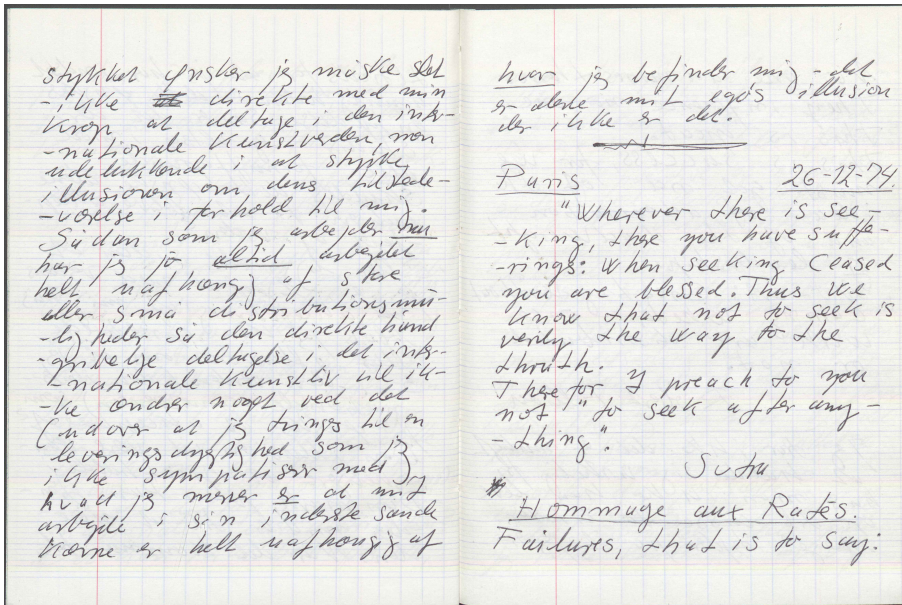 stykket ønsker jeg måske slet
-ikke direkte med min
krop at deltage i den inter-
-nationale kunstverden, men
udelukkende i at styrke
illusionen om dens tilstede-
-værelse i forhold til mig.
Sådan som jeg arbejder nu
har jeg jo altid arbejdet
helt uafhængig af store
eller små distributionsmu-
-ligheder så den direkte hånd
-gribelige deltagelse i det inter-
-nationale kunstliv vil ik-
-ke ændrer noget ved det
(udover at jeg tvinges til en
leveringsdygtighed som jeg
ikke sympatiserer med).
hvad jeg mener er at mit
arbejde i sin inderste sande
kærne er helt uafhængig af
hvor jeg befinder mig - det
er alene mit egos illusion
der ikke er det.
Paris 26-12-74.
"Wherever there is see-
-king, there you have suffe-
-rings: when seeking ceased
you are blessed. Thus we
know that not to seek is
verily the way to the
thruth.
Therefor I preach to you
not "to seek after any-
-thing".
Sutra
Hommage aux Ratés.
Failures, that is to say: